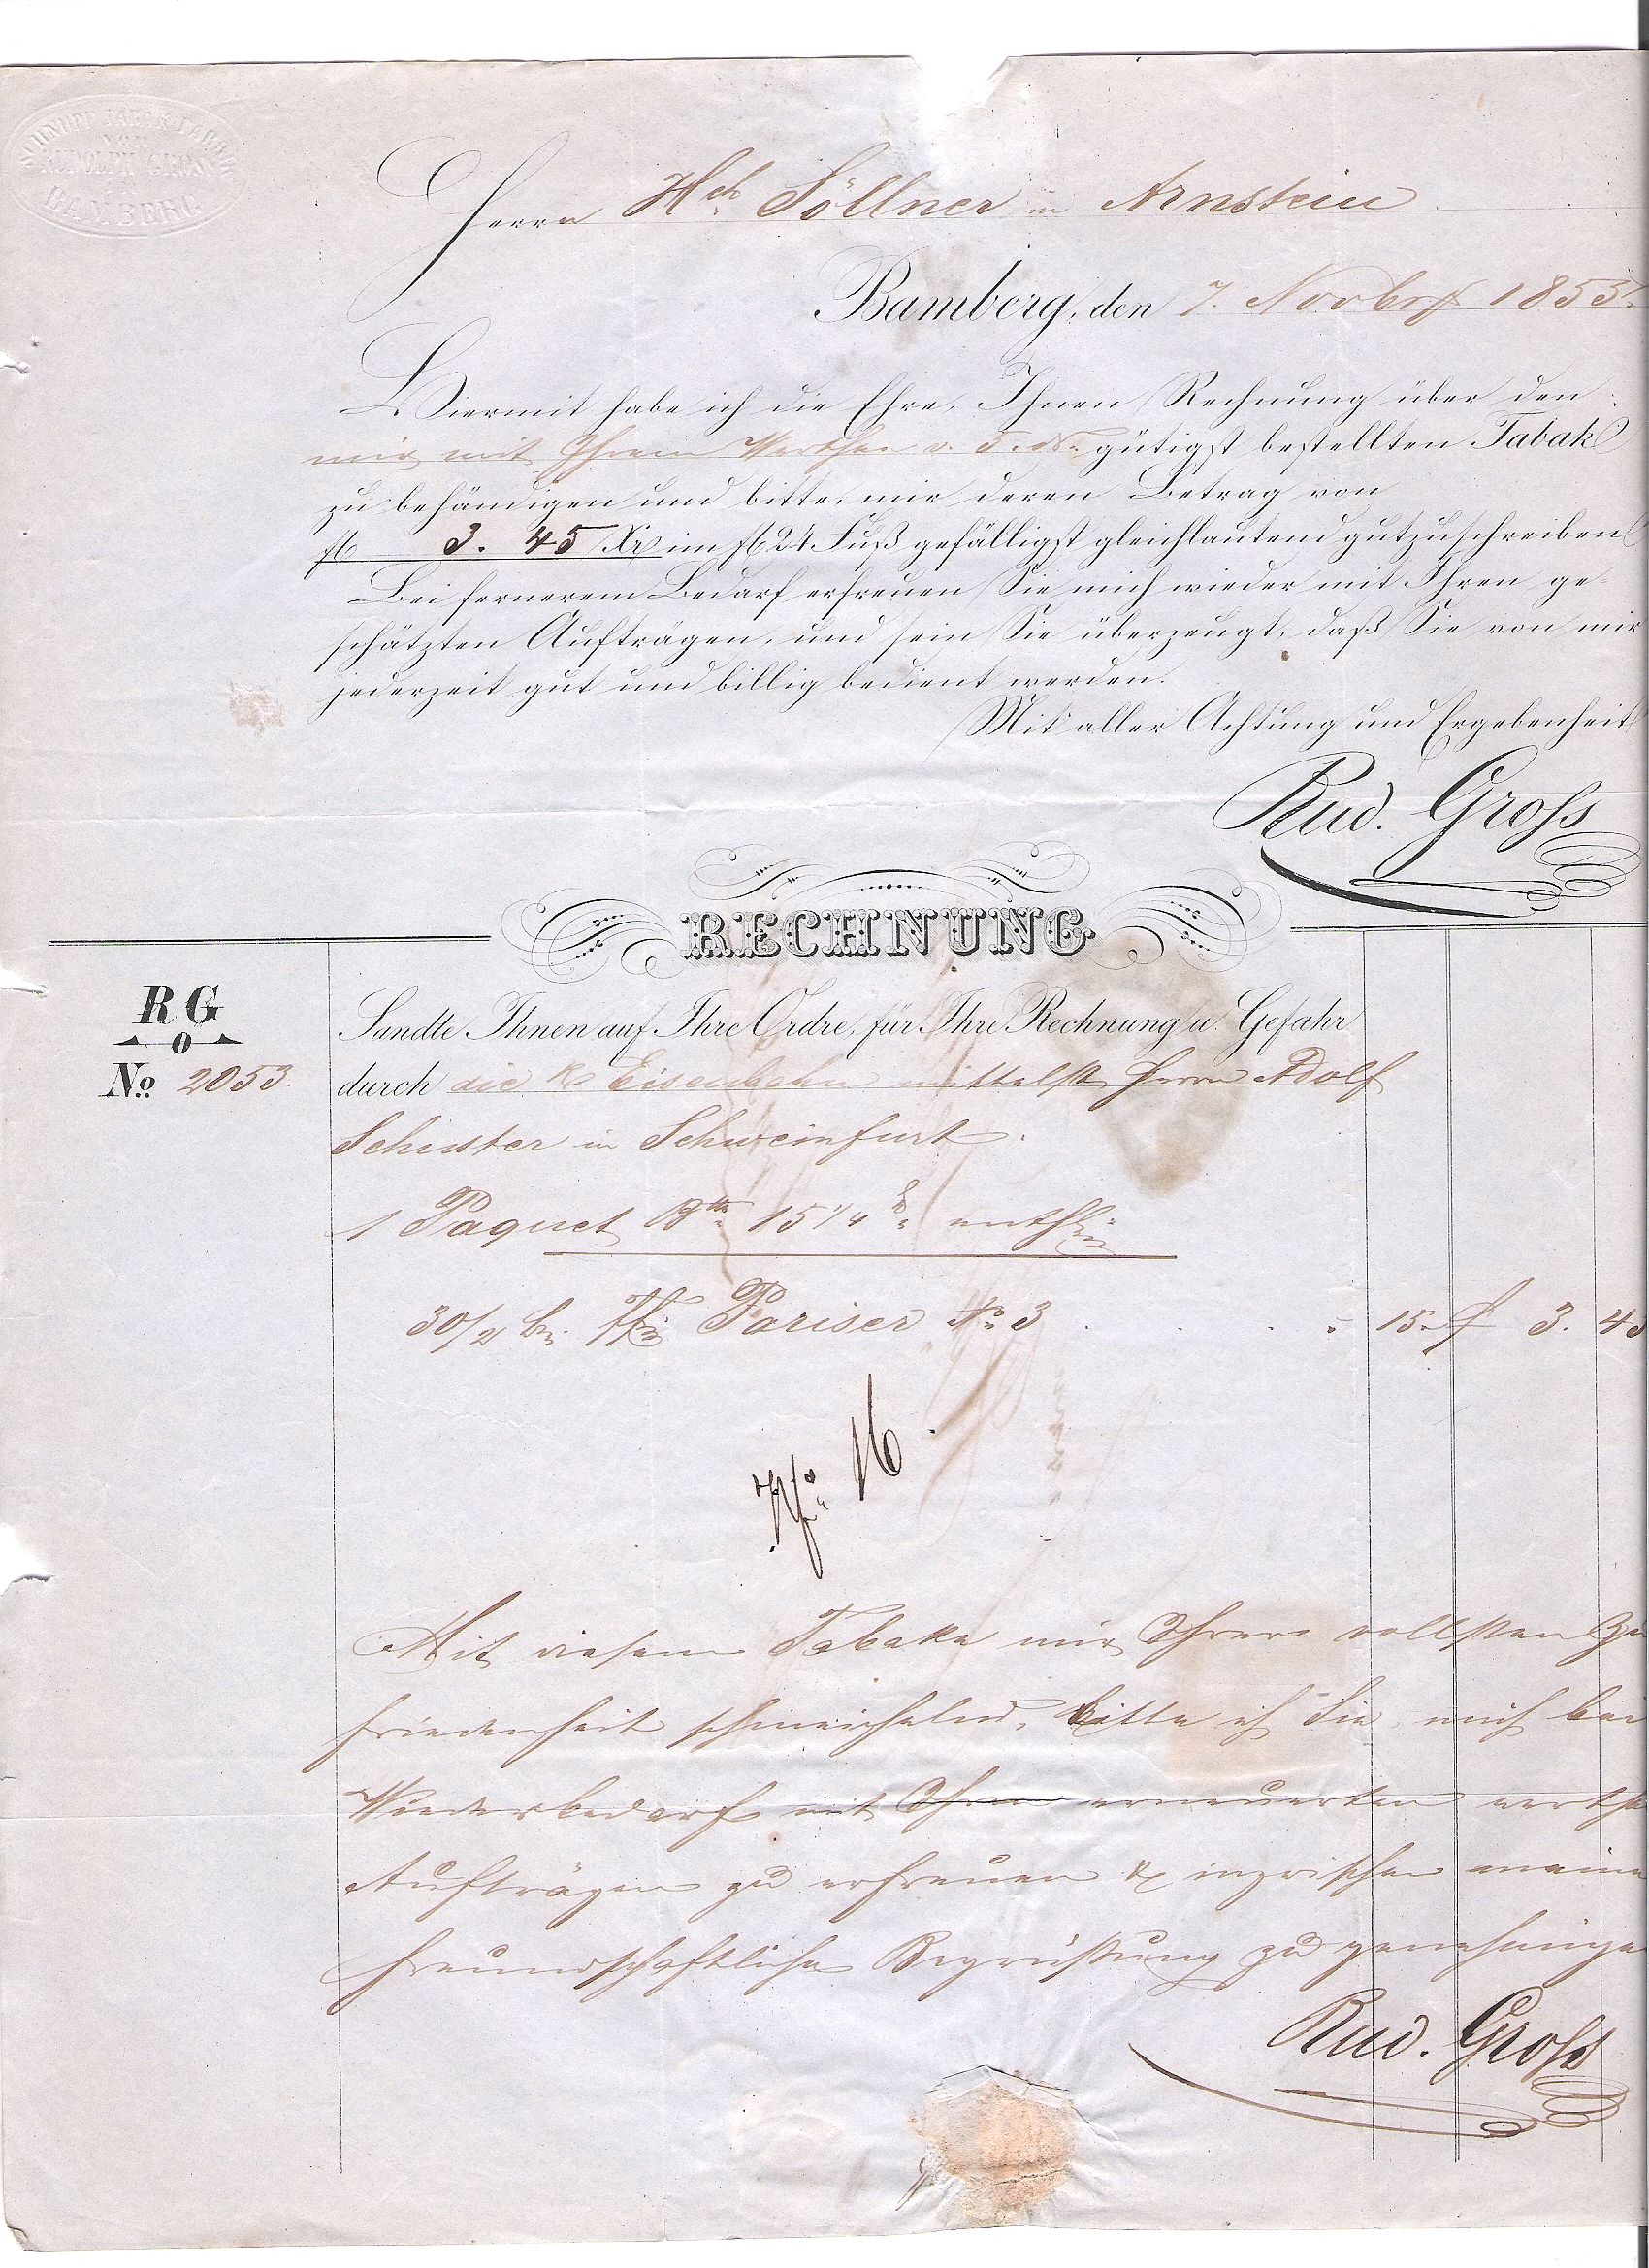 SCHNUPF TABAK FABRIK
VON
RUDOLPH GROSS
IN
BAMBERG
Herrn Hch Söllner in Arnstein
Bamberg, den 7. Novbr 1853.
Hiermit habe ich die Ehre, Ihnen Rechnung über den
mir mit Ihrem Werthen v. 5. ds. gütigst bestellten Tabak
zu behändigen und bitte, mir deren Betrag von
fl 3. 45 Xr im fl 24 Fuß gefälligst gleichlautend gutzuschreiben
Bei fernerem Bedarf erfreuen Sie mich wieder mit Ihren ge-
schätzten Aufträgen, und sein Sie überzeugt, daß Sie von mir
jederzeit gut und billig bedient werden.
Mit aller Achtung und Ergebenheit
Rud. Gross
RECHNUNG
RG
0
No. 2053.
Sandte Ihnen auf Ihre Ordre, für Ihre Rechnung u. Gefahr
durch die K Eisenbahn mittelst Herrn Adolf
Schuster in Schweinfurt.
1 Paquet Btto 15 1/4 enth
30/2 Pariser No 3 15. f 3. 45
No 16
Mit diesem Tabake mir Ihrer vollsten Zu
friedenheit schmeichelnd, bitte ich Sie, mich bei
Wiederbedarf mit Ihren erneuerten werthen
Aufträgen zu erfreuen & inzwischen meine
freundschaftliche Begrüßung zu genehmigen
Rud. Gross